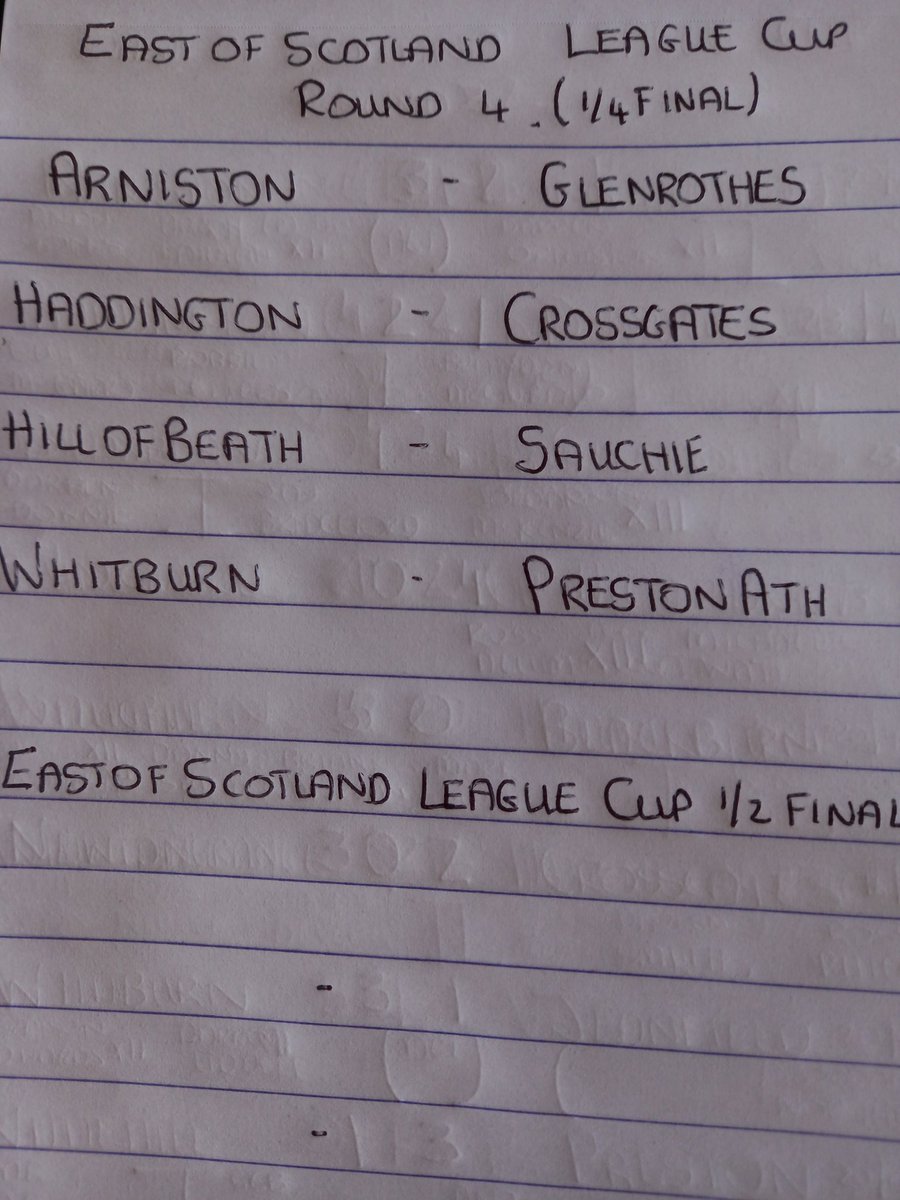 EAST OF SCOTLAND LEAGUE CUP
ROUND 4. (1/4 FINAL)
ARNISTON - GLENROTHES
HADDINGTON - CROSSGATES
HILL OF BEATH - SAUCHIE
WHITBURN - PRESTON ATH
EAST OF SCOTLAND LEAGUE CUP 1/2 FINAL
-
-